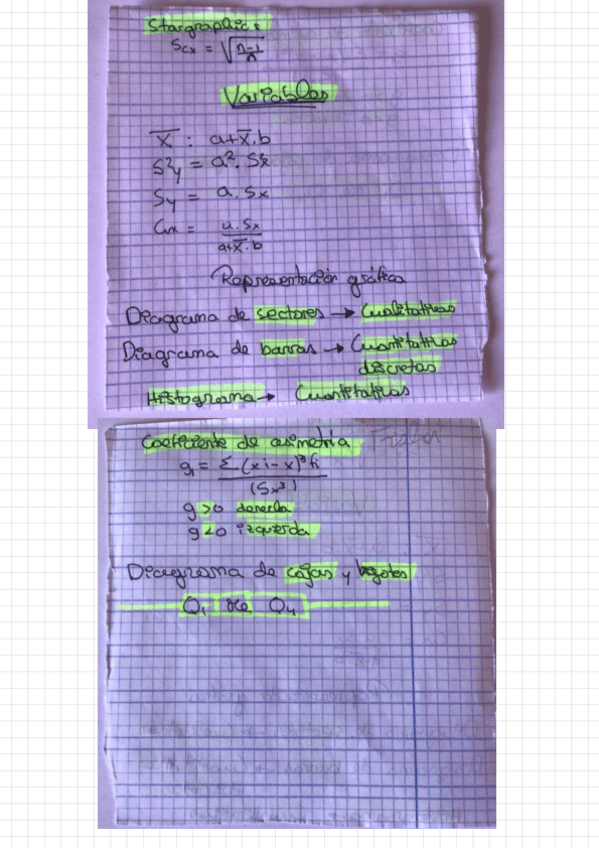 Stargraphics
Scx = √(n-1/n)
Variables
X̄ : a+x̄.b
S²y = a². S²x
Sy = a. Sx
Cvx = a.Sx / a+x̄.b
Representación gráfica
Diagrama de sectores → Cualitativas
Diagrama de barras → Cuantitativas
discretas
Histograma → Cuantitativas
Coeficiente de asimetría Fisher
g₁ = Σ(xi-x)³fi / (Sx³)
g>0 derecha
g<0 izquierda
Diagrama de cajas y bigotes
Q₁ Me Q₄